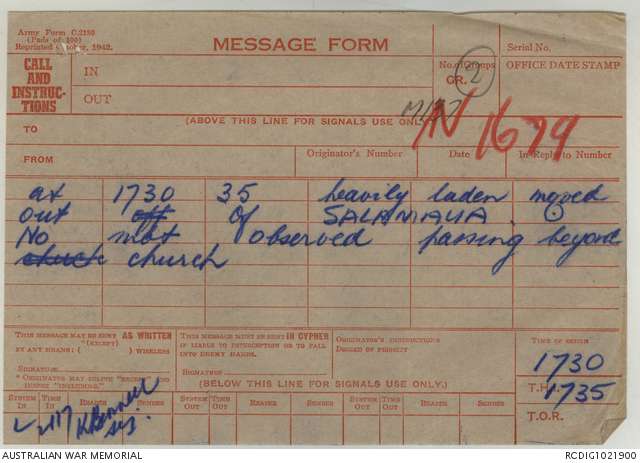 Army Form C.2180
(Pads of 100)
Reprinted October, 1942.
MESSAGE FORM
Serial No.
CALL
AND
INSTRUC-
TIONS
IN
OUT
No. of Groups
GR. 2
OFFICE DATE STAMP
(ABOVE THIS LINE FOR SIGNALS USE ONLY)
N 1679
TO
FROM
Originator's Number
Date
In Reply to Number
at 1730 35 heavily laden moved
out off of SALAMAUA.
No mot observed passing beyond
church church
THIS MESSAGE MAY BE SENT AS WRITTEN
(EXCEPT)
BY ANY MEANS ( ) WIRELESS
SIGNATURE
* ORIGINATOR MAY DELETE "EXCEPT"
THIS MESSAGE MUST BE SENT IN CYPHER
IF LIABLE TO INTERCEPTION OR TO FALL
INTO ENEMY HANDS.
SIGNATURE
ORIGINATOR'S INSTRUCTIONS
DEGREE OF PRIORITY
TIME OF ORIGIN
1730
T.H.I.
1735
T.O.R.
(BELOW THIS LINE FOR SIGNALS USE ONLY.)
SYSTEM IN
TIME IN
READER
SENDER
SYSTEM OUT
TIME OUT
READER
SENDER
SYSTEM OUT
TIME OUT
READER
SENDER
SYSTEM OUT
TIME OUT
READER
SENDER
AUSTRALIAN WAR MEMORIAL
RCDIG1021900